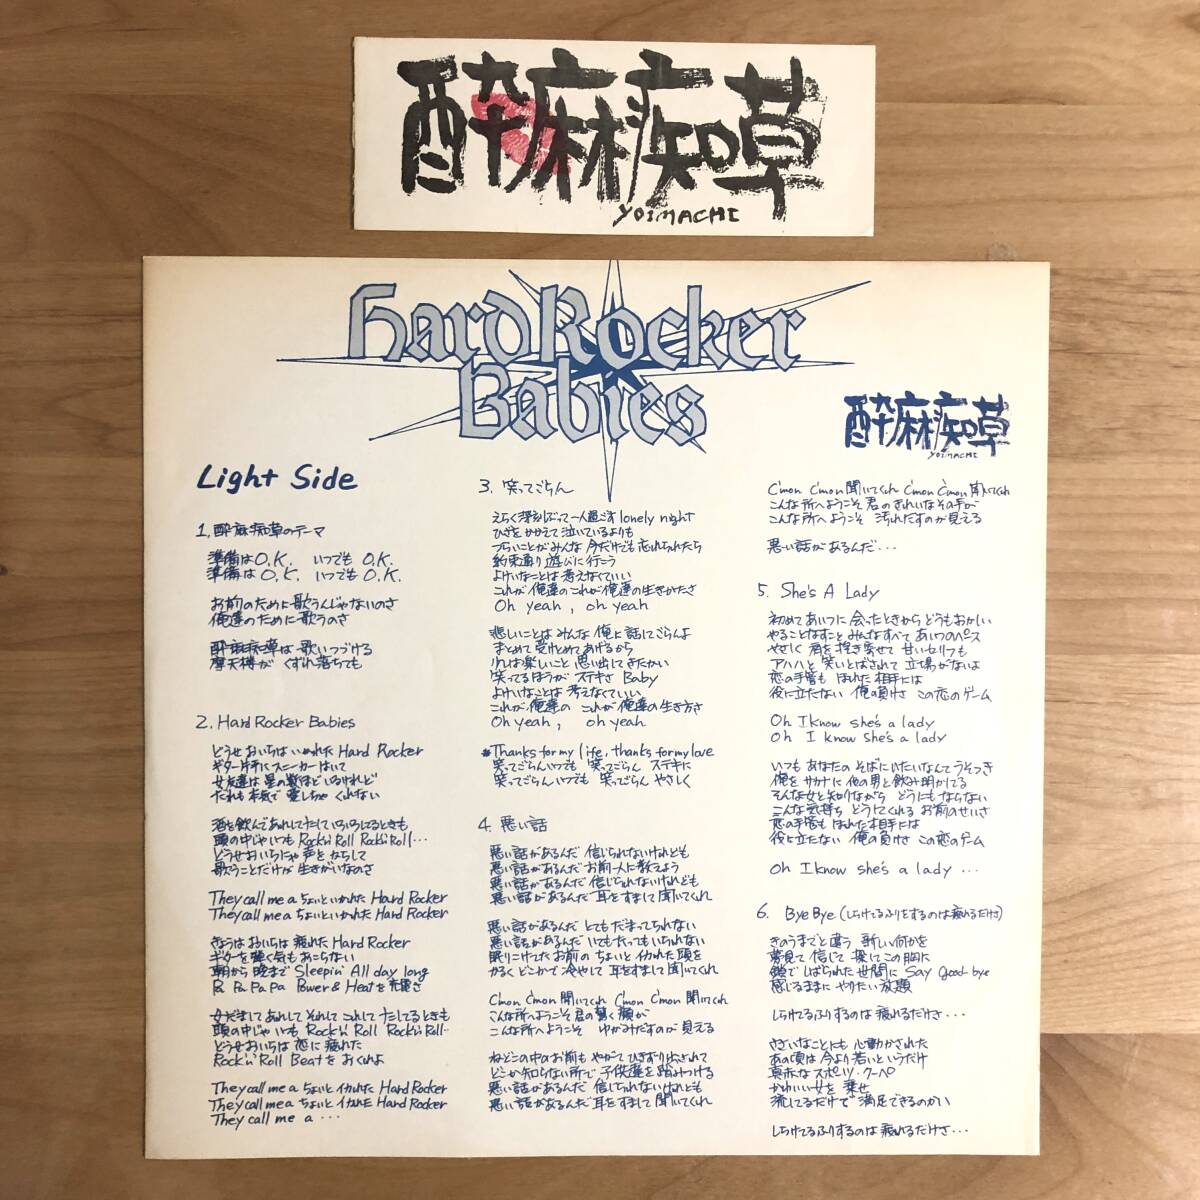 酔麻痴草
YOIMACHI
Hard Rocker
Babies
酔麻痴草
YOIMACHI
Light Side
1. 酔麻痴草のテーマ
準備はO.K. いつでも O.K.
準備はO.K. いつでも O.K.
お前のために歌うんじゃないのさ
俺達のために歌うのさ
酔麻痴草は歌いつづける
摩天楼が くずれ落ちても
2. Hard Rocker Babies
どうせおいらはいかれた Hard Rocker
ギター片手にスニーカーはいて
女友達は星の数ほどいるけれど
だれも本気で愛しちゃくれない
酒を飲んであれしてたしているときも
頭の中じゃいつも Rock'n' Roll Rock'n' Roll…
どうせおいらにゃ声をからして
歌うことだけが生きがいなのさ
They call me a ちょいといかれた Hard Rocker
They call me a ちょいといかれた Hard Rocker
きょうはおいらは疲れた Hard Rocker
ギターを弾く気もおこらない
朝から晩まで Sleepin' All day long
Pa Pa Pa Pa Power & Heatを充電さ
女だましてあれして それして これしてたしてるときも
頭の中じゃいつも Rock'n' Roll Rock'n' Roll…
どうせおいらは恋に疲れた
Rock'n' Roll Beatをおくれよ
They call me a ちょいとイカれた Hard Rocker
They call me a ちょいとイカれた Hard Rocker
They call me a …
3. 笑ってごらん
えらく深刻ぶって一人過ごす lonely night
ひざをかかえて泣いているよりも
つらいことがみんな今だけでも忘れられたら
約束通り遊びに行こう
よけいなことは考えなくていい
これが俺達のこれが俺達の生きかたさ
Oh yeah, oh yeah
悲しいことはみんな俺に話してごらんよ
まとめて受けとめてあげるから
楽しいこと思い出してきたかい
笑ってるほうがステキさ Baby
よけいなことは考えなくていい
これが俺達の これが俺達の生き方さ
Oh yeah, oh yeah
*Thanks for my life, thanks for my love
笑ってごらんいつでも 笑ってごらん ステキに
笑ってごらんいつでも 笑ってごらん やさしく
4. 悪い話
悪い話があるんだ 信じられないけれども
悪い話があるんだ お前一人に教えよう
悪い話があるんだ 信じられないけれども
悪い話があるんだ 耳をすまして聞いてくれ
悪い話があるんだ とてもだまってられない
悪い話があるんだ いてもたってもいられない
眠りこけてたお前の ちょいとイカれた頭を
かるくどこかで冷やして 耳をすまして聞いてくれ
C'mon C'mon 聞いてくれ C'mon C'mon 聞いてくれ
こんな所へようこそ君の驚く顔が
こんな所へようこそ ゆがみだすのが見える
ねどこの中のお前も やがてひきずり出されて
どこか知らない所で 子供達を踏みつける
悪い話があるんだ 信じられないけれども
悪い話があるんだ 耳をすまして聞いてくれ
C'mon C'mon 聞いてくれ C'mon C'mon 聞いてくれ
こんな所へようこそ 君のきれいなその手が
こんな所へようこそ 汚れだすのが見える
悪い話があるんだ…
5. She's A Lady
初めてあいつに会ったときから どうもおかしい
やることなすこと みんなすべて あいつのペース
やさしく肩を抱き寄せて 甘いセリフも
アハハと笑いとばされて 立場がないよ
恋の手管も ほれた相手には
役に立たない 俺の負けさ この恋のゲーム
Oh I know she's a lady
Oh I know she's a lady
いつもあなたのそばにいたいなんてうそつき
俺をサカナに他の男と飲み明かしてる
そんな女と知りながら どうにもならない
こんな気持ち どうしてくれる お前のせいさ
恋の手管も ほれた相手には
役に立たない 俺の負けさ この恋のゲーム
Oh I know she's a lady …
6. Bye Bye (しらけてるふりをするのは疲れるだけさ)
きのうまでと違う 新しい何かを
夢見て 信じて 抱いてこの胸に
鎖でしばられた世間に Say good-bye
感じるままに やりたい放題
しらけてるふりするのは疲れるだけさ…
ささいなことにも 心動かされた
あの頃は今より若いというだけ
真赤なスポーツ・クーペ
かわいい女を 乗せ
流してるだけで 満足できるのかい
しらけてるふりするのは 疲れるだけさ…